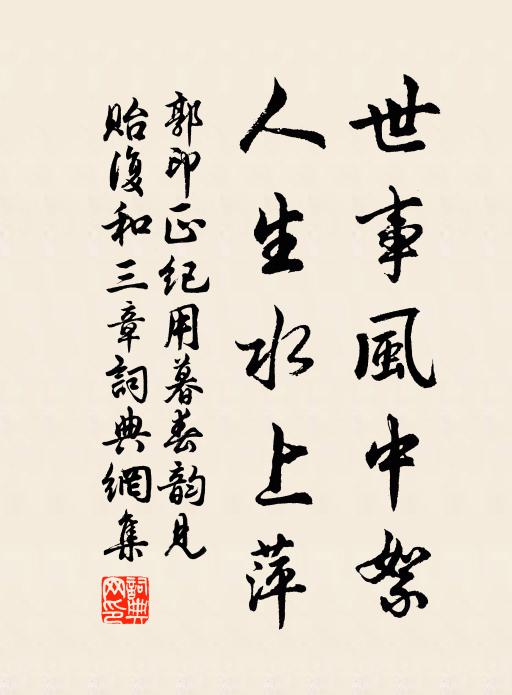 世事風中絮
人生水上萍
郭印正纪用暮春韵見
貽復和三章詞典網集
詞典網印